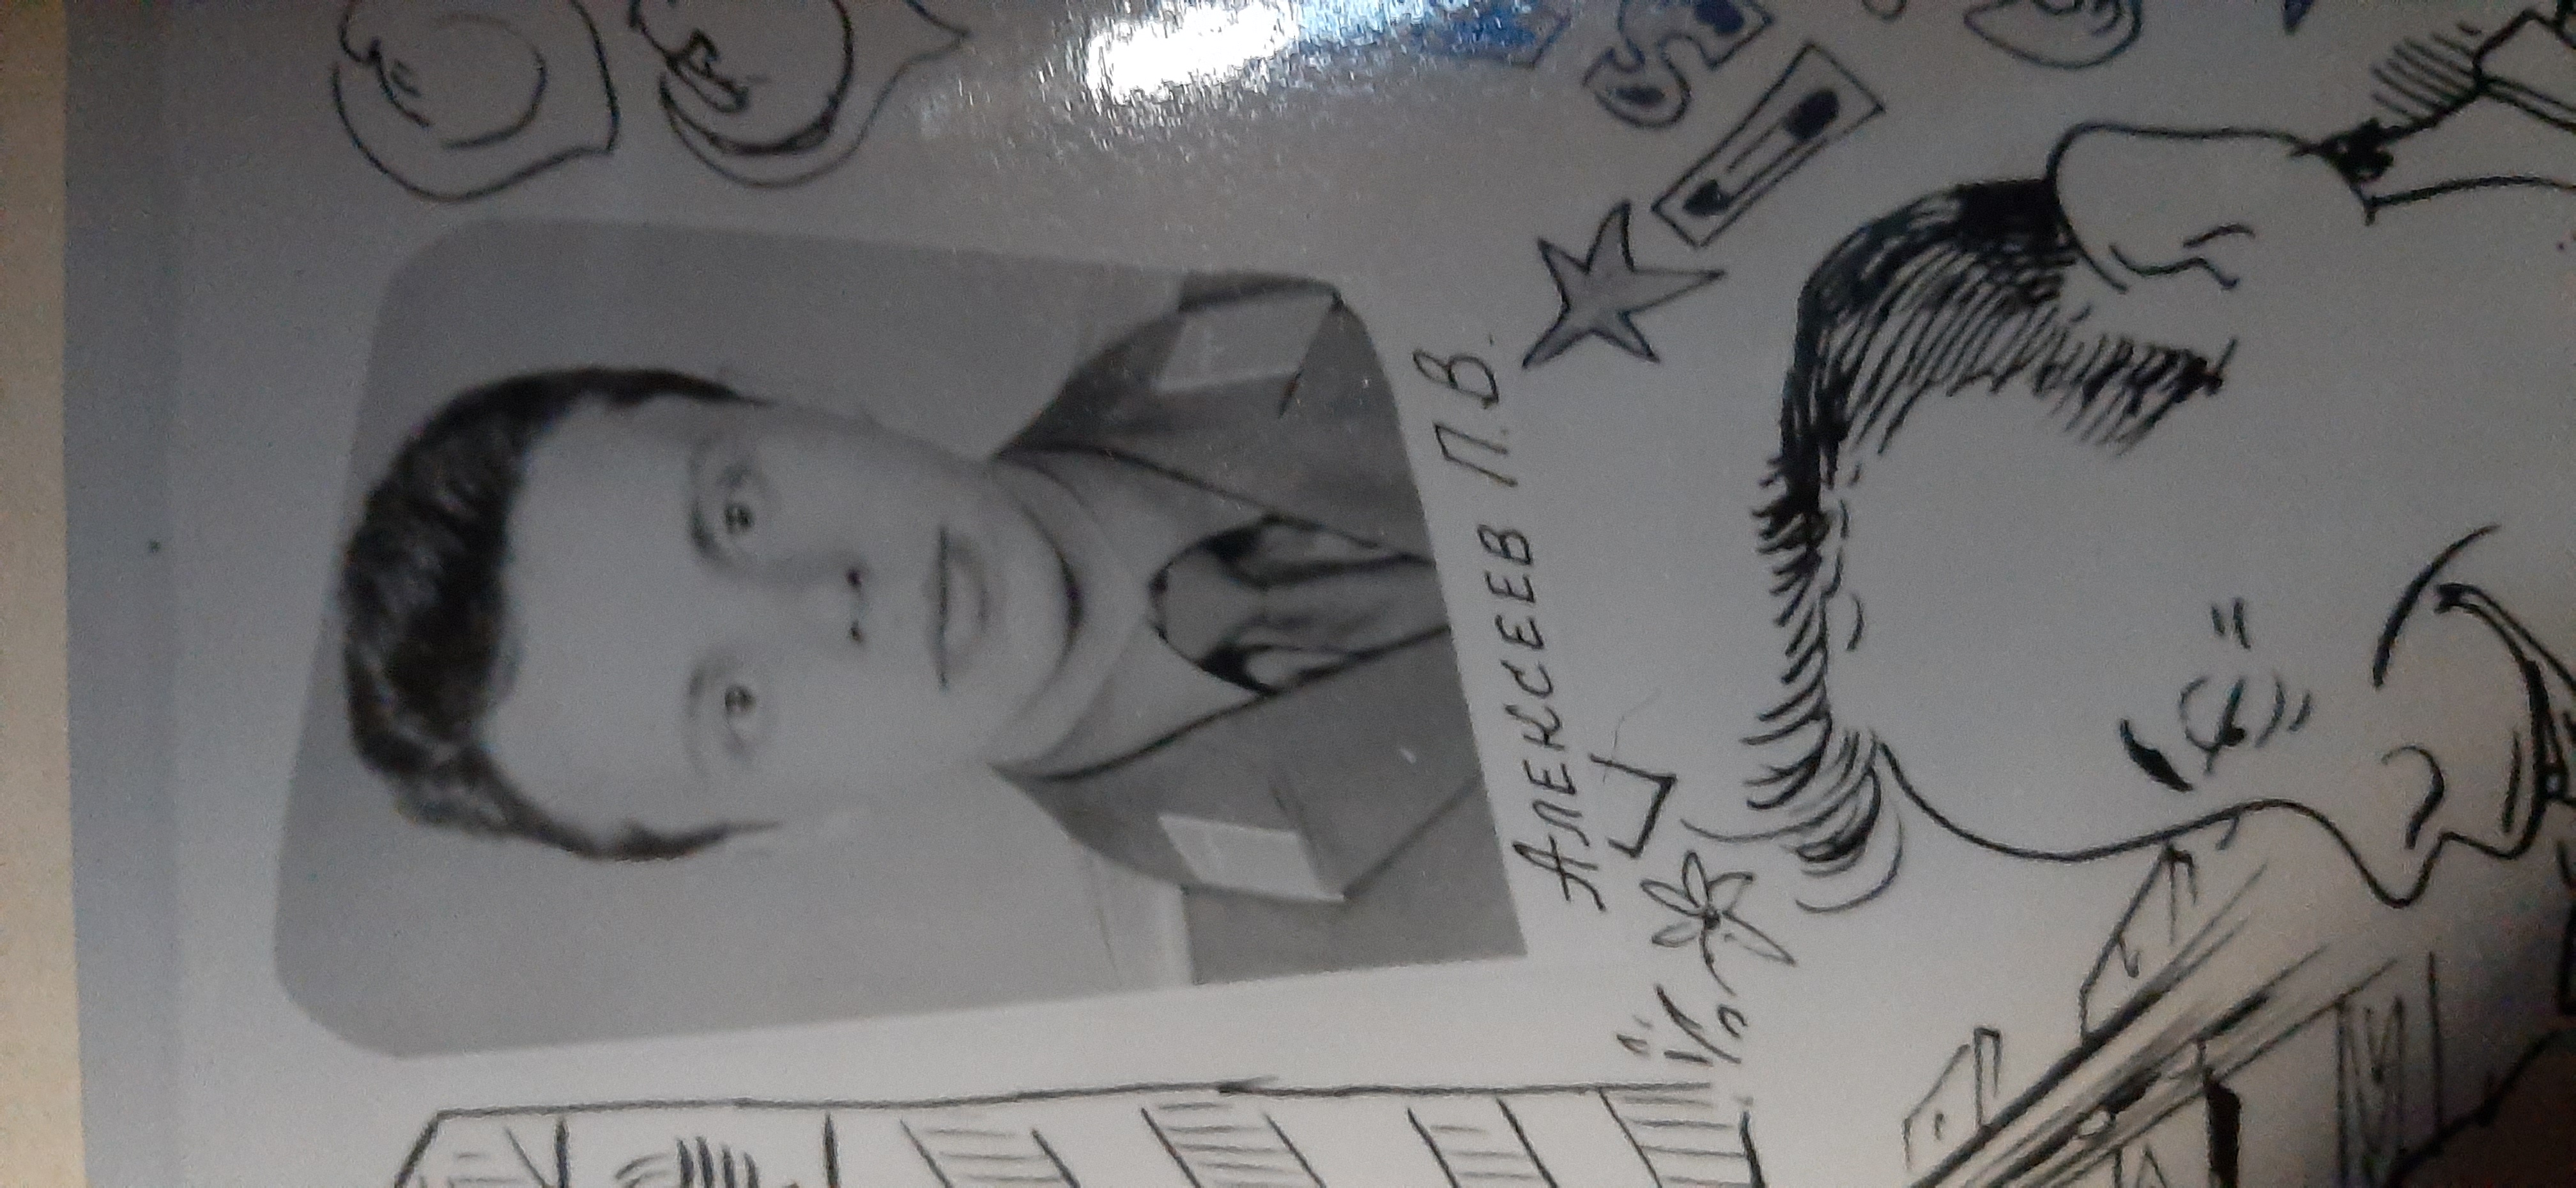 Алексеев П.В.